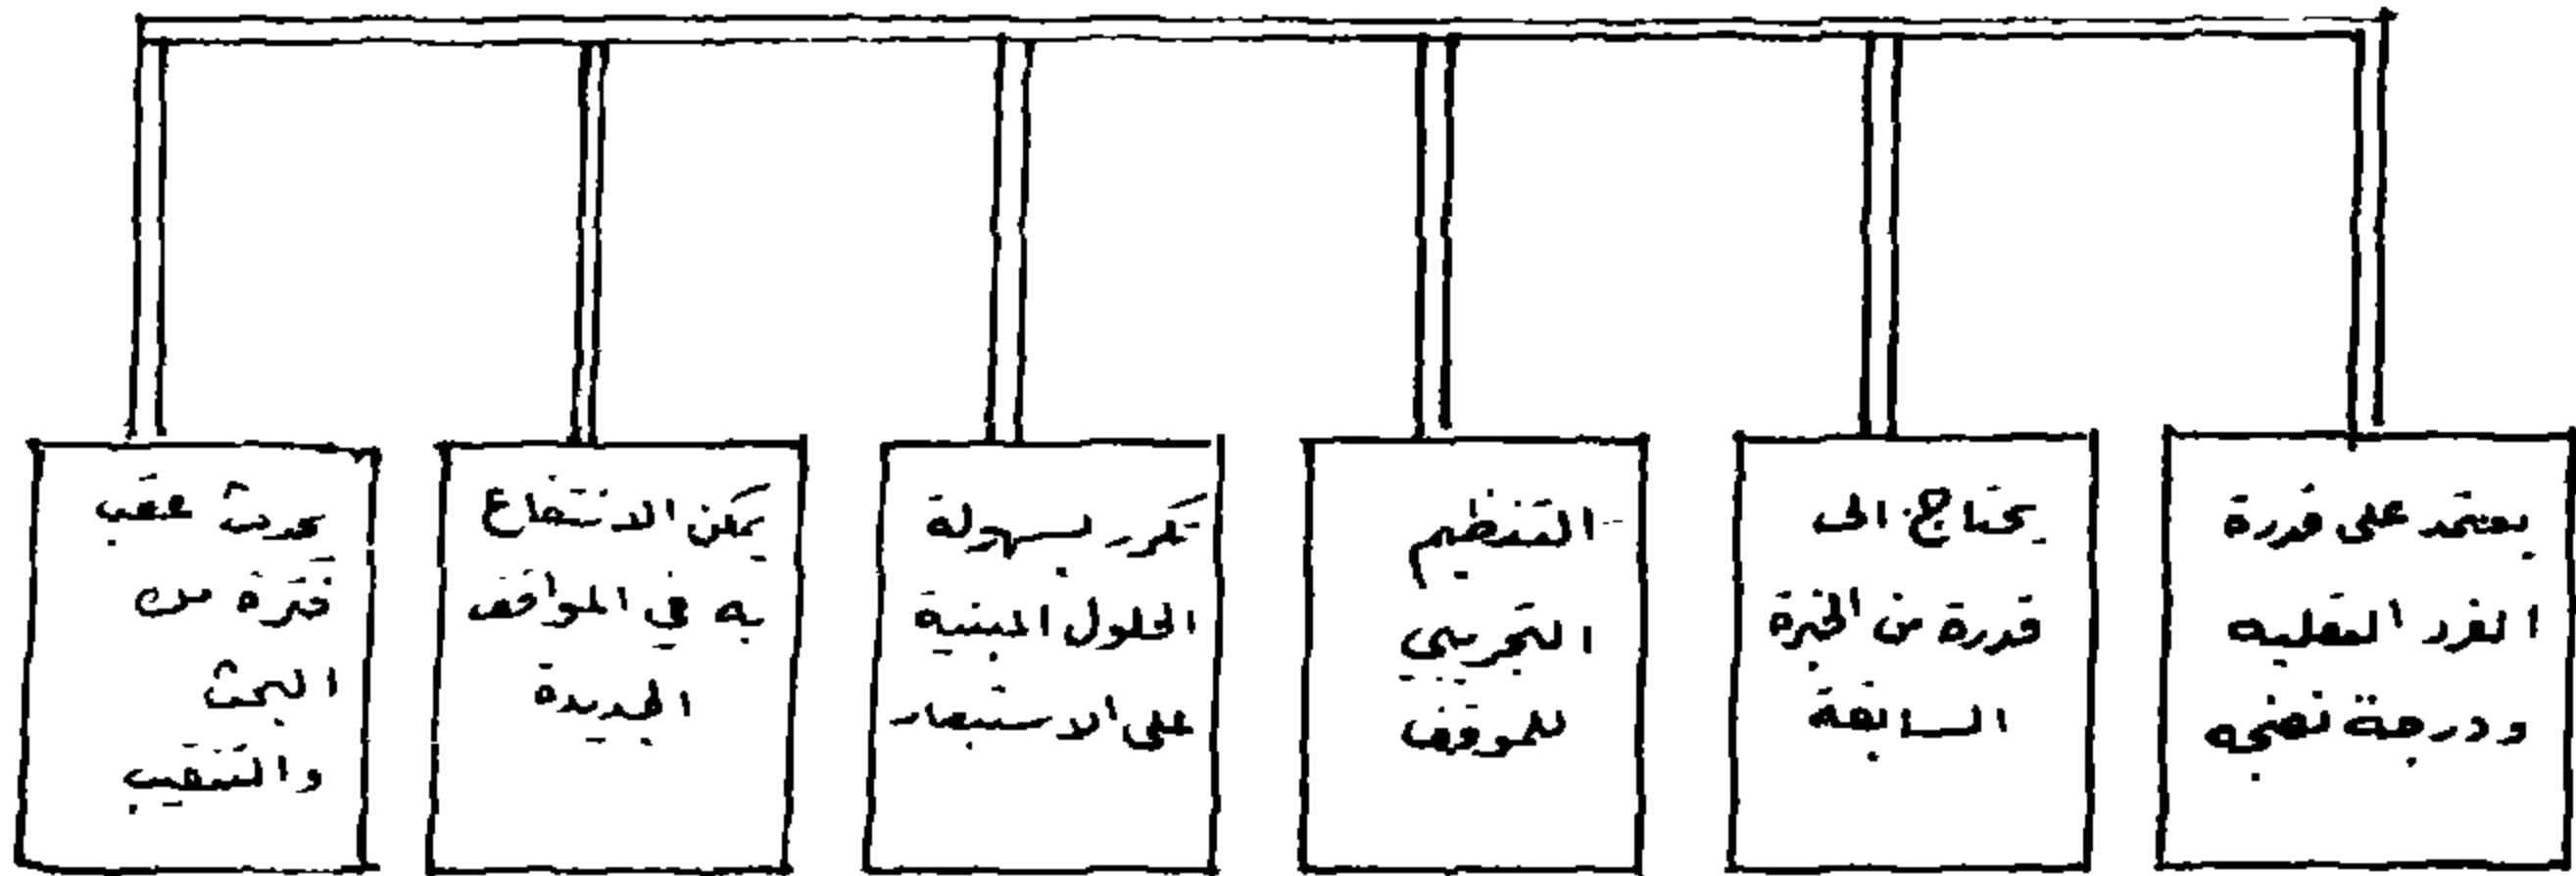 يعتمد على قدرة
الفرد العقليه
ودرجة نضجه
يحتاج الى
قدرة من الخبرة
السابقة
التنظيم
التجريبي
للموقف
تكرر بسهولة
الحلول المبنية
على الاستبصار
يمكن الانتفاع
به في المواقف
الجديدة
يحدث عقب
فترة من
البحث
والتنقيب